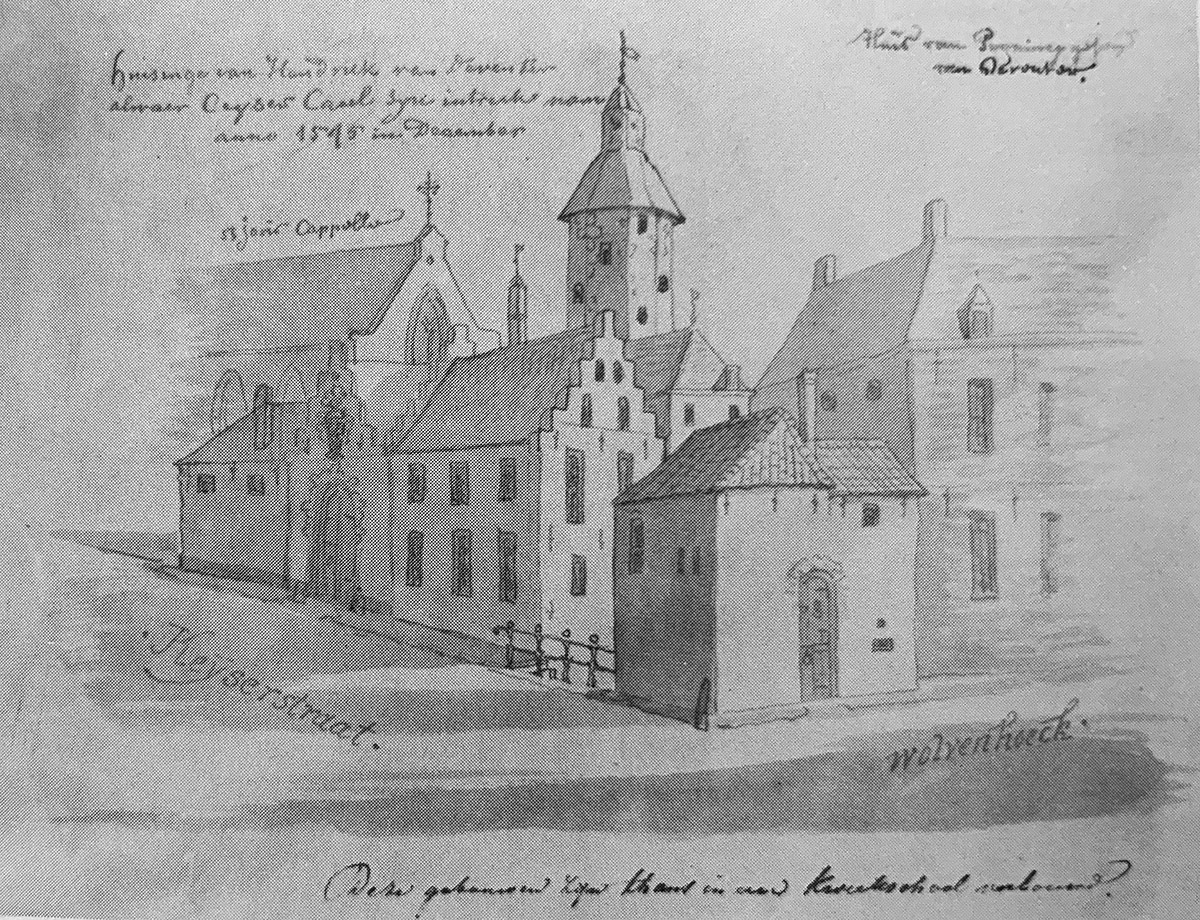 huisinge van Hendrick van Deventer
alwaer Ceyser Carel Syn intreck nam
anno 1545 in December
Huis van
van Deventer.
st joris Cappelle
Keyserstraat.
wolvenhoeck.
Deze gebouwen zijn thans in een Kweekschool verbouwd.